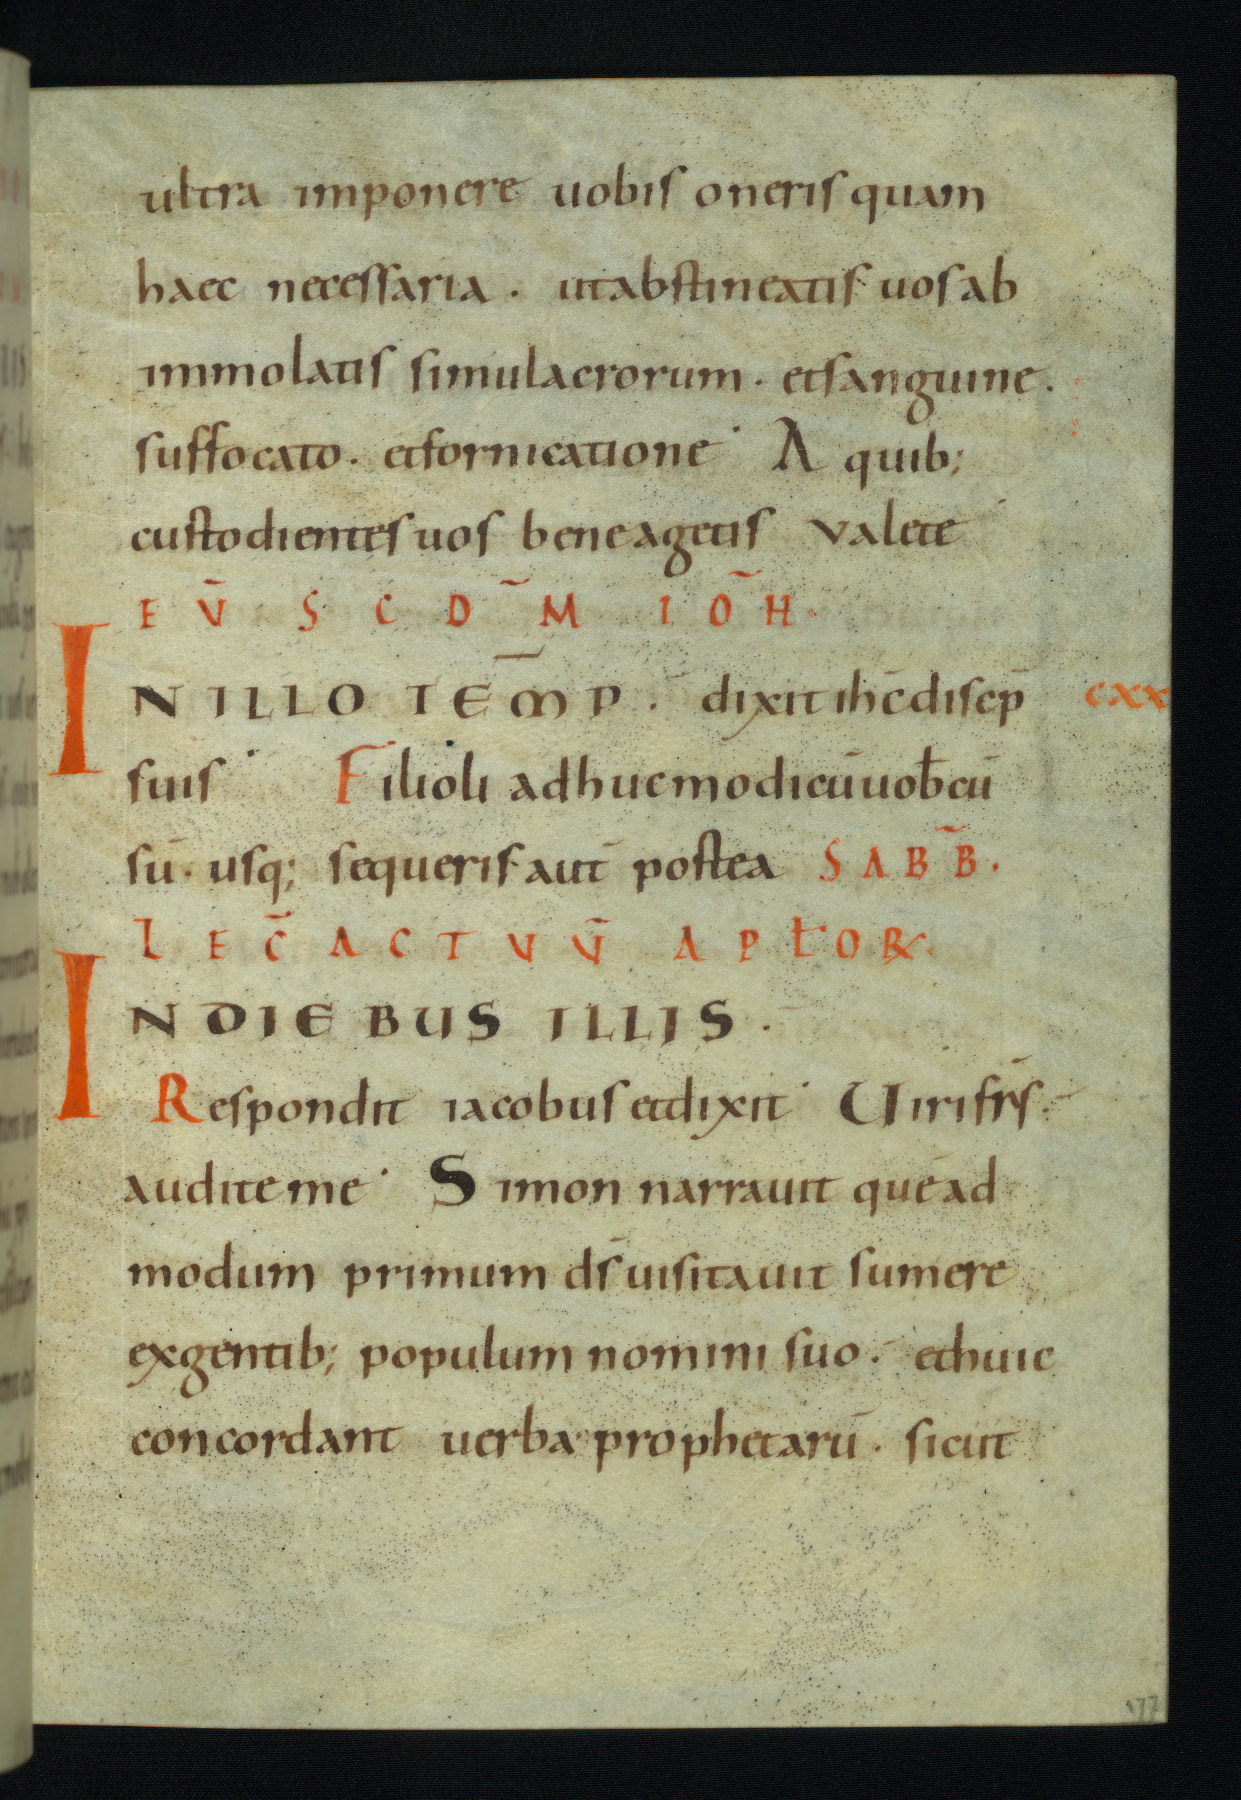 ultra imponere uobis oneris quam
haec necessaria . utabstineatis uos ab
immolatis simulacrorum . etsanguine .
suffocato . etfornicatione· A quib;
custodientes uos bene agetis valete
EṼ S C D̃ M I OH̃ .
IN ILLO TEM̄P . dixit ih̄c discip̄ cxx
suis· Filioli adhuc modicū uob̄cū
sū . usq; sequeris aut̄ postea SABB̃ .
LEC̃ ACTUŨ APłOR .
IN DIEBUS ILLIS .
Respondit iacobus etdixit· Uiri fr̄s .
audite me· Simon narrauit quēad
modum primum d̄s uisitauit sumere
exgentib; populum nomini suo . ethuic
concordant uerba prophetarū . sicut
177